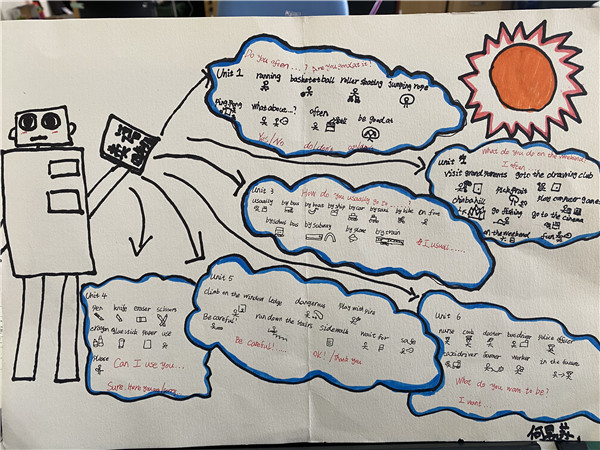 Do you often ...? Are you good at it?
Unit 1 running basketball roller skating jumping rope
Ping Pong what about...? often be good at
Yes/No do/don't
Unit 2 What do you do on the weekend?
I often
visit grandparents go to the drawing club
pick fruit play computer games
climb a hill go fishing go to the cinema
on the weekend fun
Unit 3 How do you usually go to ......?
usually by bus by boat by ship by car by taxi by bike on foot
by school bus by subway by plane by train
I usually ......
Unit 4
pen knife eraser scissors
crayon glue stick paper use
please Can I use you...
Sure. Here you are
Unit 5
climb on the window ledge dangerous play with pins
Be careful! run down the stairs sidewalk wait for safe
Be careful!...... OK! / Thank you
Unit 6
nurse cook doctor bus driver police officer
taxi driver farmer worker in the future
What do you want to be?
I want...